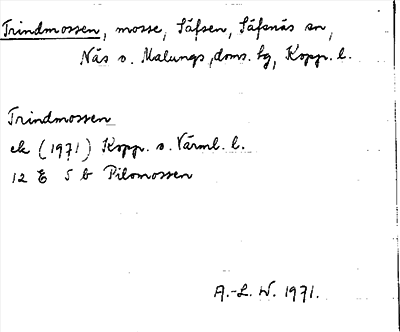 Trindmossen, mosse, Säfsen, Säfsnäs sn,
Näs o. Malungs doms. hg, Kopp. l.
Trindmossen
ek (1971) Kopp. o. Värml. l.
12 E 5 b Pilomossen
A.-L. W. 1971.